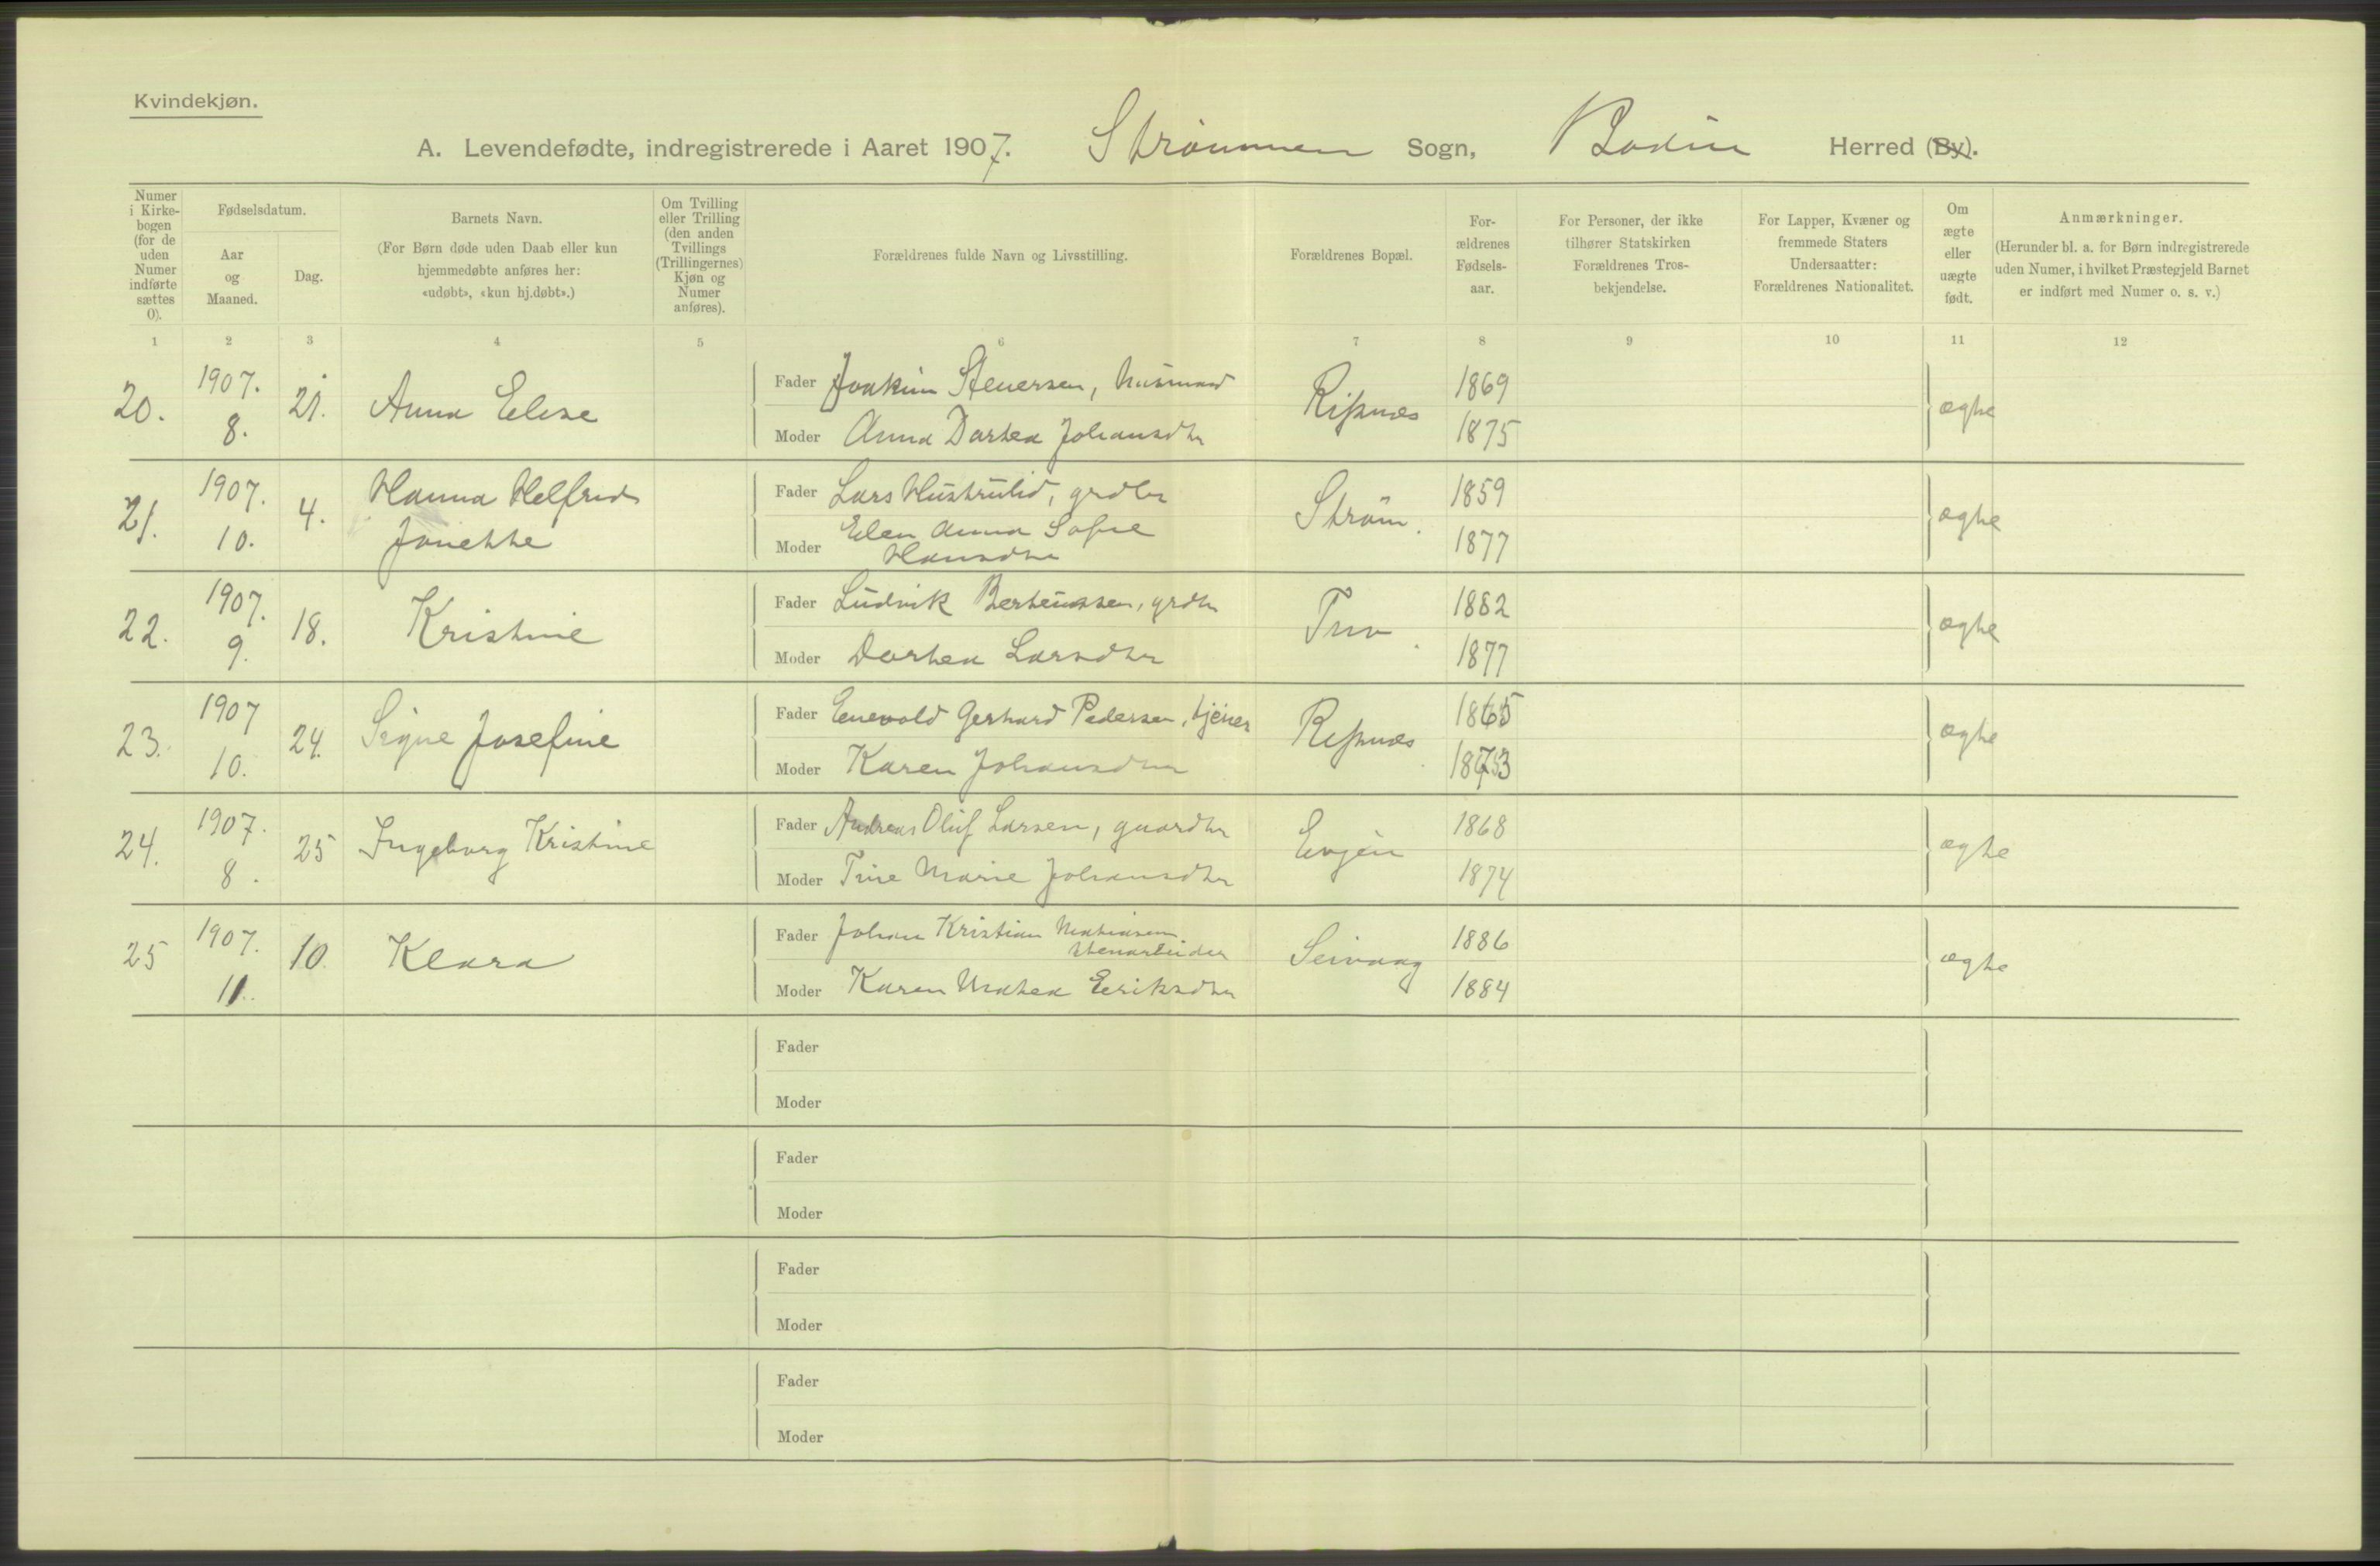 Kvindekjøn.
A. Levendefødte, indregistrerede i Aaret 1907. Strømmen Sogn, Bodin Herred (By).
Numer i Kirkebogen (for de uden Numer indførte sættes 0).
Fødselsdatum.
Aar og Maaned.
Dag.
Barnets Navn.
(For Børn døde uden Daab eller kun
hjemmedøbte anføres her:
«udøbt», «kun hj.døbt».)
Om Tvilling
eller Trilling
(den anden
Tvillings
(Trillingernes)
Kjøn og
Numer
anføres).
Forældrenes fulde Navn og Livsstilling.
Forældrenes Bopæl.
For-
ældrenes
Fødsels-
aar.
For Personer, der ikke
tilhører Statskirken
Forældrenes Tros-
bekjendelse.
For Lapper, Kvæner og
fremmede Staters
Undersaatter:
Forældrenes Nationalitet.
Om
ægte
eller
uægte
født.
Anmærkninger.
(Herunder bl. a. for Børn indregistrerede
uden Numer, i hvilket Præstegjeld Barnet
er indført med Numer o. s. v.)
1 2 3 4 5 6 7 8 9 10 11 12
20. 1907. 8. 21. Anna Elise
Fader Joakim Steuersen, husmand 1869
Moder Anna Dortea Johansdtr 1875
Ripnæs ægte
21. 1907. 10. 4. Hanna Helfrid
Jonette
Fader Lars Hustrulid, grdbr 1859
Moder Elen Anna Sofie
Hansdtr 1877
Strøm. ægte
22. 1907. 9. 18. Kristine
Fader Ludvik Berteussen, grdbr 1882
Moder Dortea Larsdtr 1877
ægte
23. 1907 10. 24. Signe Josefine
Fader Enevold Gerhard Pedersen, tjener 1865
Moder Karen Johansdtr
Ripnæs ægte
24. 1907. 8. 25 Ingeborg Kristine
Fader Andreas Oluf Larsen, gaardbr 1868
Moder Trine Marie Johansdtr 1874
Evjen ægte
25 1907. 11. 10. Klara
Fader Johan Kristian Mathiasen
stenarbeider 1886
Moder Karen Mathea Eeriksdtr 1884
Seivaag ægte
Fader
Moder
Fader
Moder
Fader
Moder
Fader
Moder